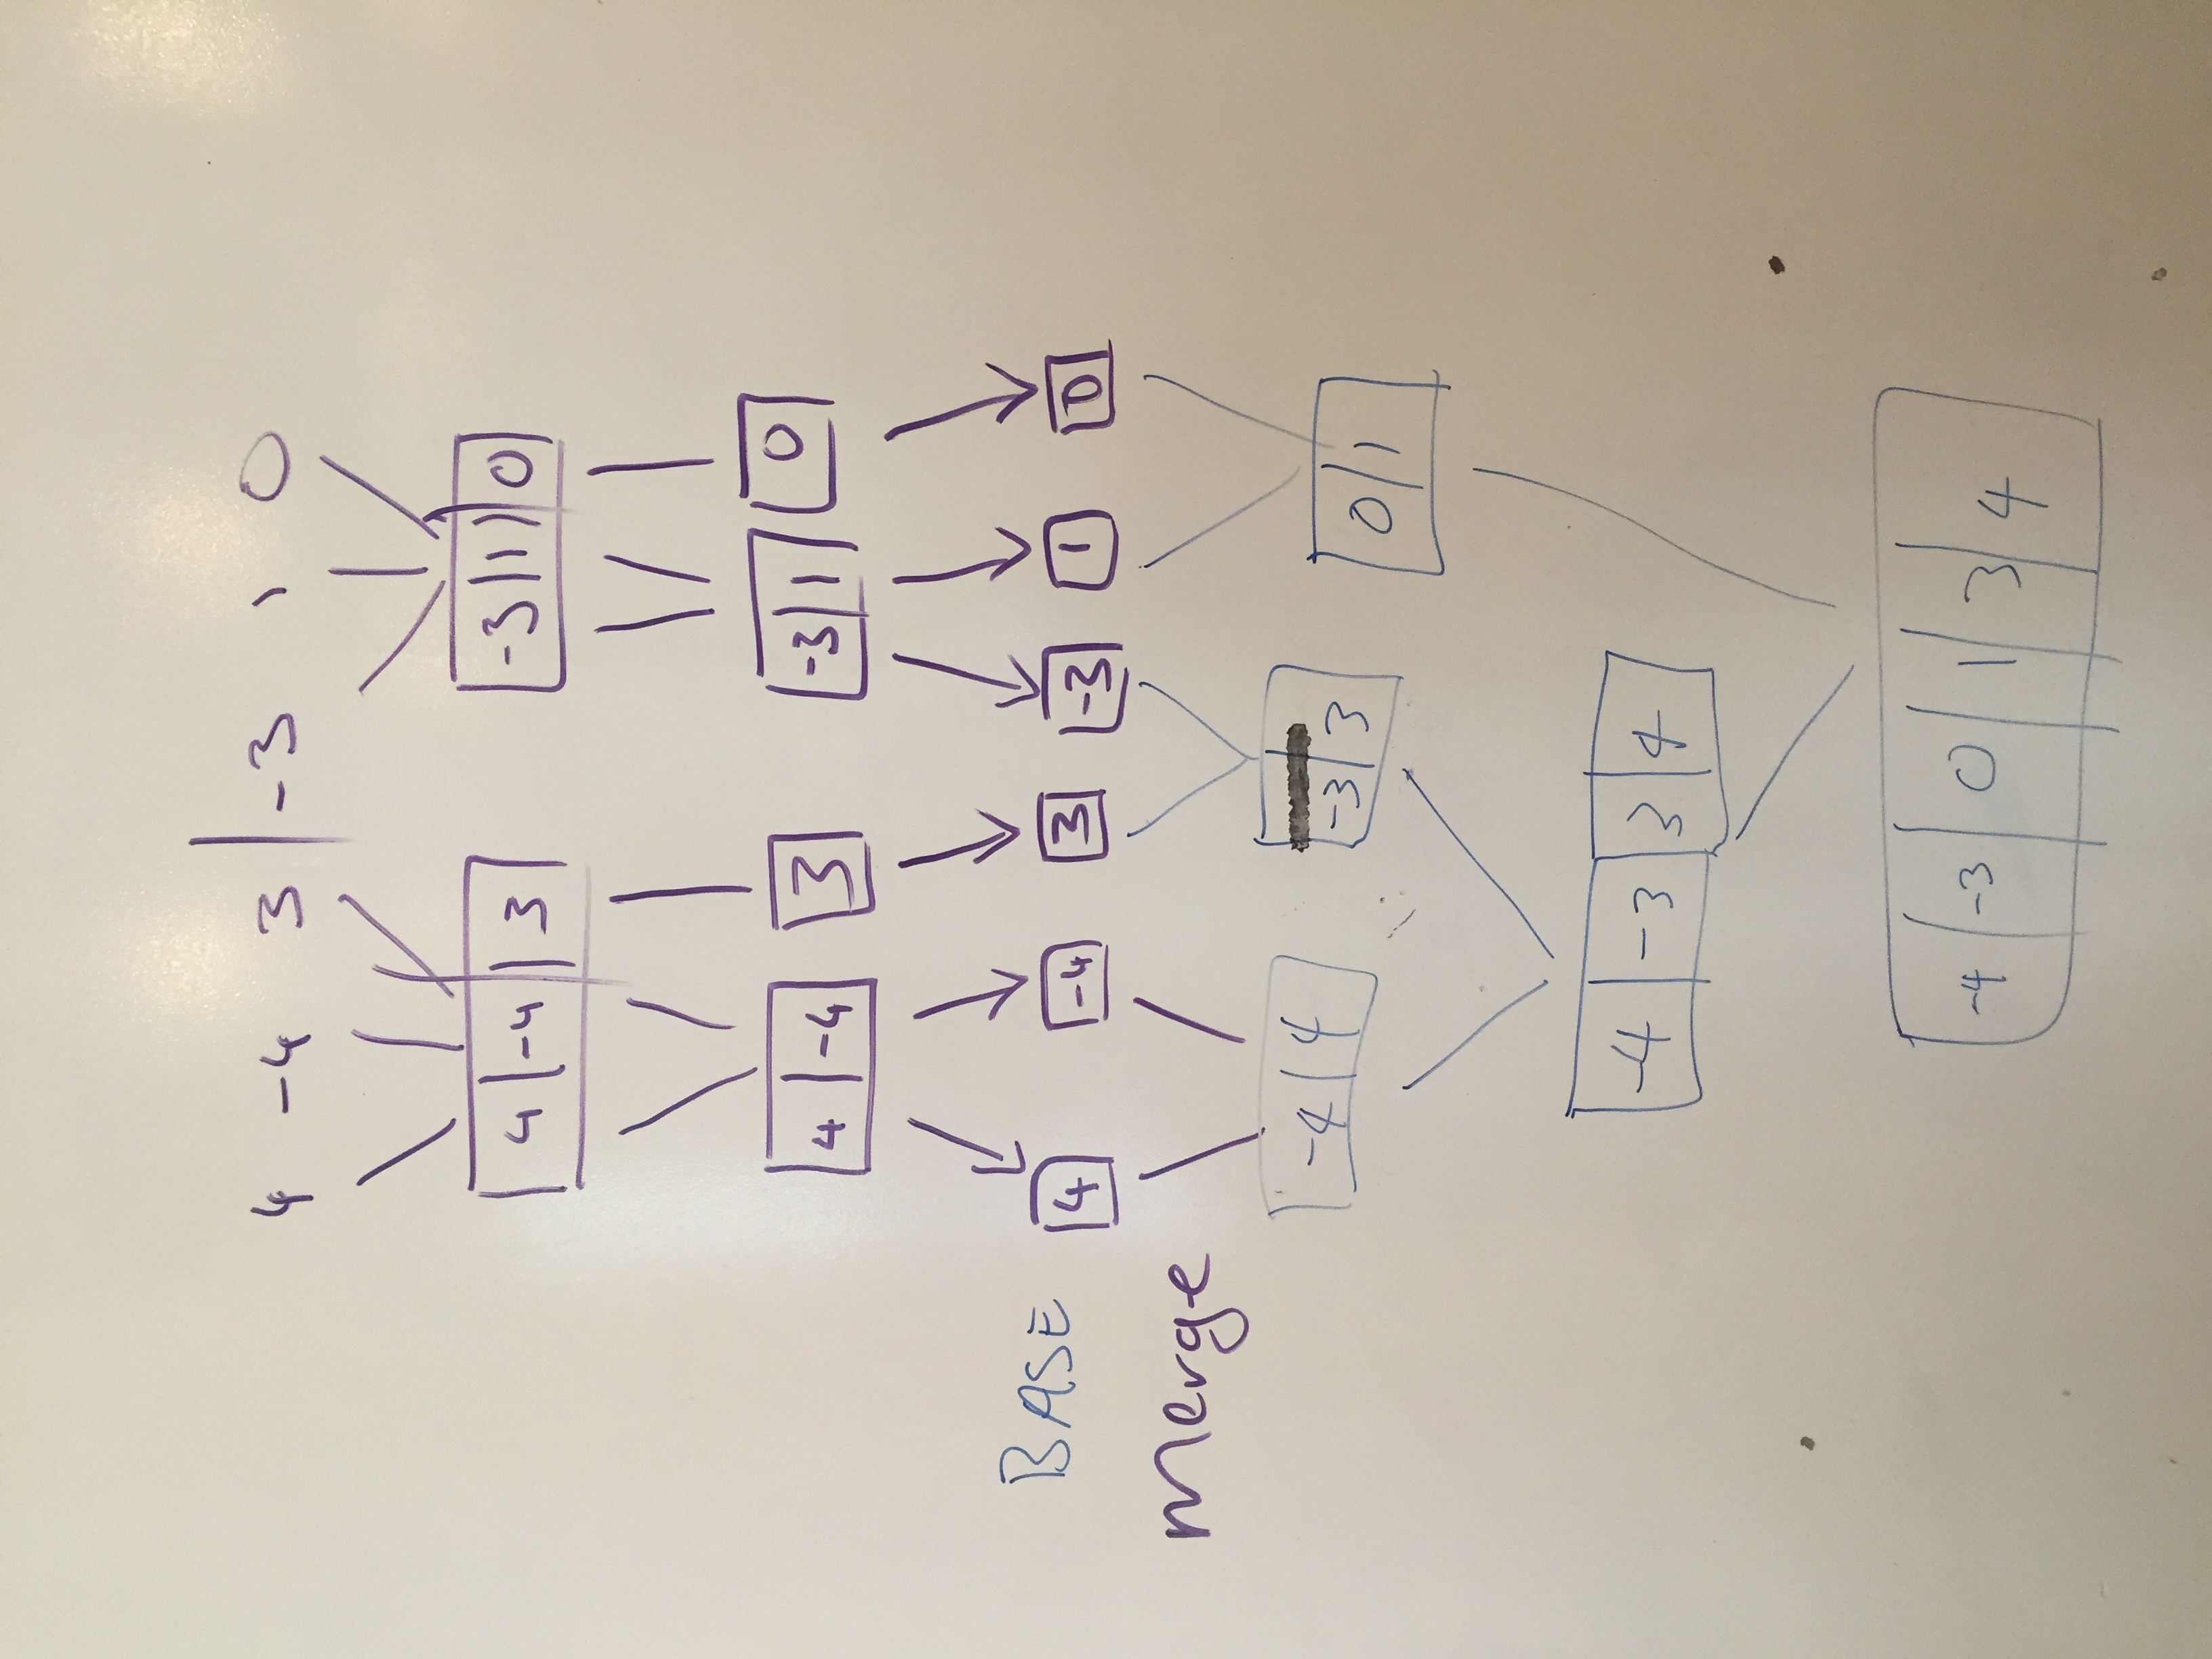 4 -4 3 | -3 1 0
4 | -4 | 3 -3 | 1 | 0
4 | -4 3 -3 | 1 0
BASE 4 -4 3 -3 1 0
Merge
-4 | 4 -3 | 3 0 | 1
-4 | -3 | 3 | 4
-4 | -3 | 0 | 1 | 3 | 4